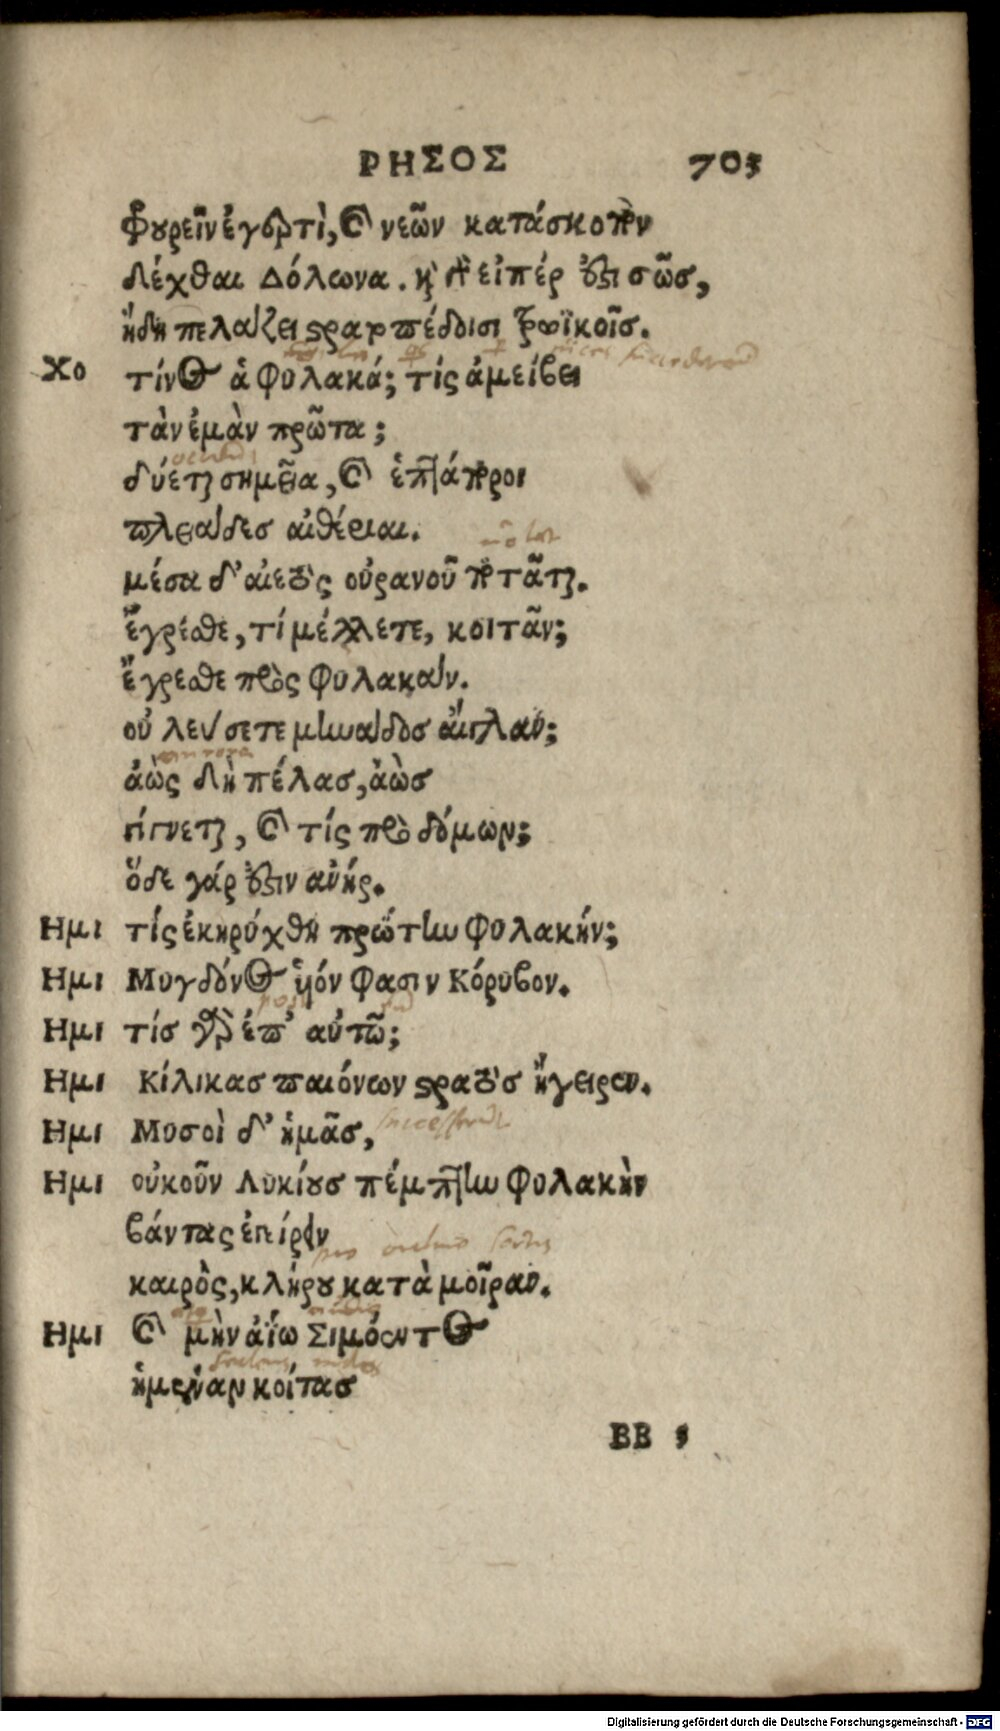 ΡΗΣΟΣ 705
φρουρεῖν ἐγερτὶ, καὶ νεῶν κατάσκοπον
δέχθαι Δόλωνα. καὶ γὰρ εἰπέρ ἐστι σῶς,
ἤδη πελάζει στρατοπέδοισι τρωϊκοῖς.
Χο τίνος ἁ φυλακά; τίς ἀμείβει
τὰν ἐμὰν πρῶτα;
δύεται σημεῖα, καὶ ἑπτάποροι
πλειάδες αἰθέριαι.
μέσα δ' αἰετὸς οὐρανοῦ ποτᾶται.
ἔγρεσθε, τί μέλλετε, κοιτᾶν;
ἔγρεσθε πρὸς φυλακάν.
οὐ λεύσετε μηνάδος αἴγλαν;
ἀὼς δὴ πέλας, ἀὼς
γίγνεται, καὶ τίς πρὸ δόμων;
ὅδε γάρ ἐστιν ἀνήρ.
Ημι τίς ἐκηρύχθη πρώτην φυλακήν;
Ημι Μυγδόνος ὑόν φασιν Κόρυβον.
Ημι τίς γὰρ ἐπ' αὐτῶ;
Ημι Κίλικας παιόνων στρατὸς ἤγειρεν.
Ημι Μυσοὶ δ' ἡμᾶς,
Ημι οὐκοῦν Λυκίους πέμπτην φυλακὴν
βάντας ἐγείρειν
καιρὸς, κλήρου κατὰ μοῖραν.
Ημι καὶ μὴν ἀΐω Σιμόεντος
ἡμένα κοίτας
BB 5